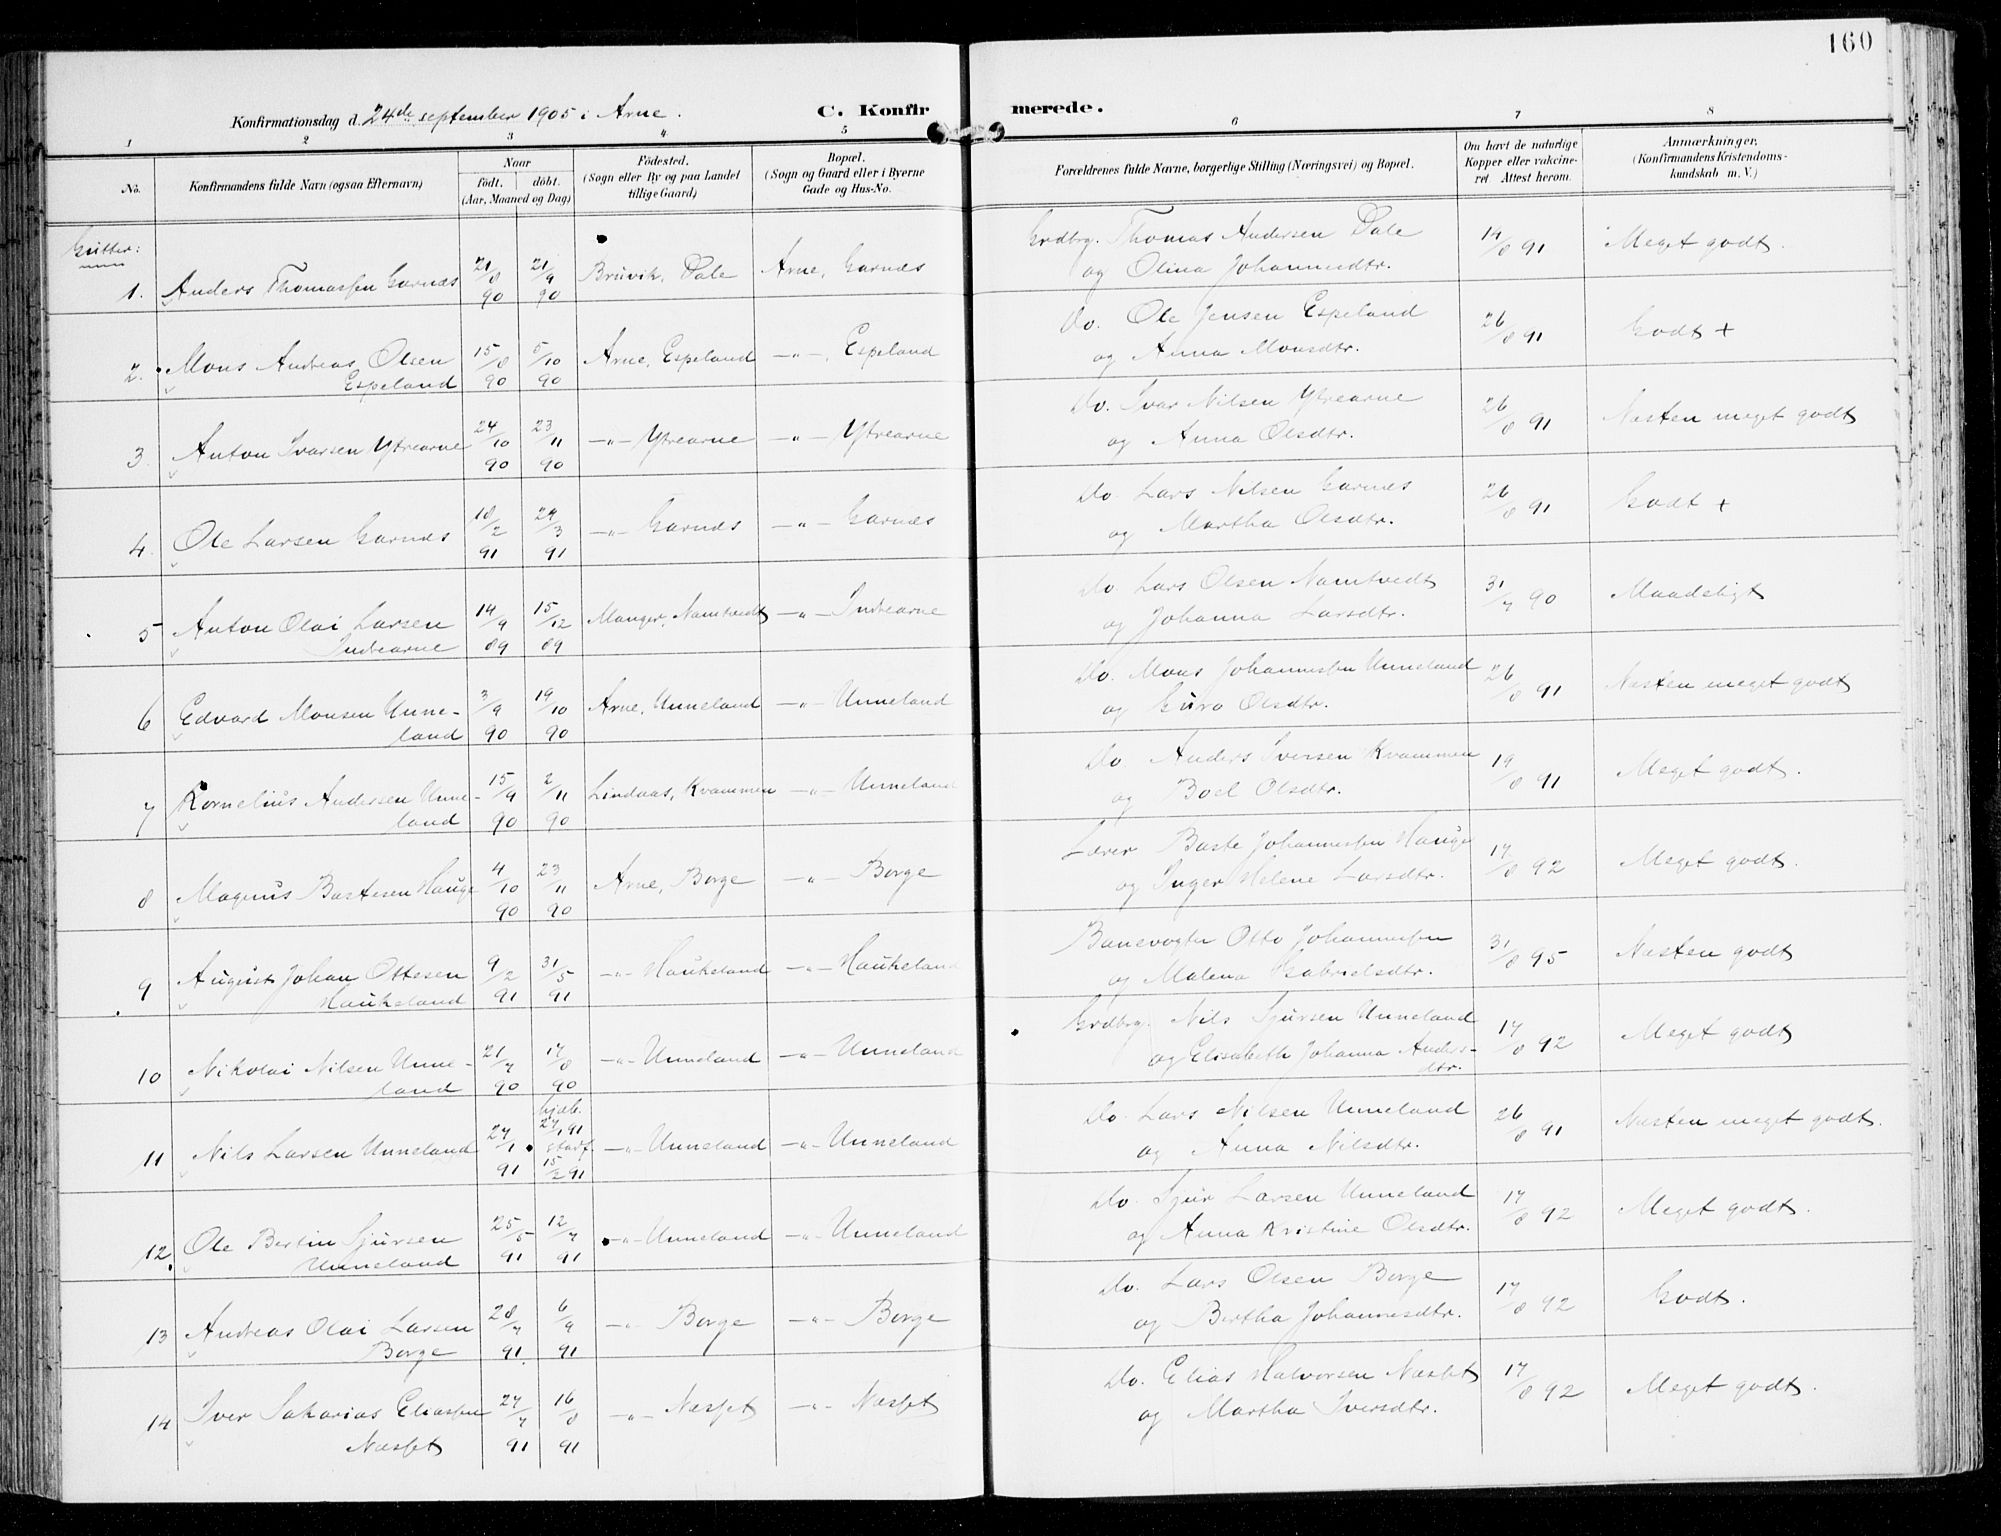 160
Konfirmationsdag d. 24de september 1905 i Arne.
C. Konfirmerede.
1 2 3 4 5 6 7 8
No.
Konfirmandens fulde Navn (ogsaa Efternavn)
Naar
født. døbt.
(Aar, Maaned og Dag)
Födested.
(Sogn eller By og paa Landet
tillige Gaard)
Bopæl.
(Sogn og Gaard eller i Byerne
Gade og Hus-No.
Forældrenes fulde Navne, borgerlige Stilling (Næringsvei) og Bopæl.
Om havt de naturlige
Kopper eller vakcine-
ret. Attest herom.
Anmærkninger.
(Konfirmandens Kristendoms-
kundskab m. V.)
Gutter:
1. Anders Thomassen Garnæs 21/8 90 21/9 90 Bruvik, Dale Arne, Garnæs Grdbrg. Thomas Andersen Dale
og Olina Johannesdtr. 14/8 91 Meget godt.
2. Mons Andreas Olsen
Espeland 15/8 90 5/10 90 Arne, Espeland —"— Espeland Do. Ole Jensen Espeland
og Anna Monsdtr. 26/8 91 Godt +
3. Anton Ivarsen Ytrearne 24/10 90 23/11 90 —"— Ytrearne —"— Ytrearne Do. Ivar Nilsen Ytrearne
og Anna Olsdtr. 26/8 91 Næsten meget godt
4. Ole Larsen Garnæs 18/2 91 24/3 91 —"— Garnæs —"— Garnæs Do. Lars Nilsen Garnæs
og Martha Olsdtr. 26/8 91 Godt +
5 Anton Olai Larsen
Indrearne 14/9 89 15/12 89 Manger, Namtvedt —"— Indrearne Do. Lars Olsen Namtvedt
og Johanna Larsdtr. 31/7 90 Maadeligt
6 Edvard Monsen Unne-
land 3/9 90 19/10 90 Arne, Unneland —"— Unneland Do. Mons Johannessen Unneland
og Guro Olsdtr. 26/8 91 Næsten meget godt
7 Kornelius Andersen Unne-
land 15/9 90 2/11 90 Lindaas, Kvammen —"— Unneland Do Anders Iversen Kvammen
og Boel Olsdtr. 19/8 91 Meget godt.
8 Magnus Bastesen Hauge 4/10 90 23/11 90 Arne, Borge —"— Borge Lærer Baste Johannessen Hauge
og Inger Helene Larsdtr. 17/8 92 Meget godt.
9 August Johan Ottesen
Haukeland 9/2 91 31/5 91 —"— Haukeland —"— Haukeland Banevogter Otto Johannessen
og Malena Gabrielsdtr. 31/8 95 Næsten godt
10 Nikolai Nilsen Unne-
land 21/7 90 17/8 90 —"— Unneland —"— Unneland Grdbrg. Nils Sjursen Unneland
og Elisabeth Johanna Anders-
dtr. 17/8 92 Meget godt
11 Nils Larsen Unneland 27/1 91 hjdb. 27/1 91 stadf. 15/2 91 —"— Unneland —"— Unneland Do. Lars Nilsen Unneland
og Anna Nilsdtr. 26/8 91 Næsten meget godt.
12. Ole Bertin Sjursen
Unneland 25/5 91 12/7 91 —"— Unneland —"— Unneland Do. Sjur Larsen Unneland
og Anna Kristine Olsdtr. 17/8 92 Meget godt.
13 Andreas Olai Larsen
Borge 28/7 91. 6/9 91 —"— Borge —"— Borge Do. Lars Olsen Borge
og Bertha Johannesdtr. 17/8 92 Godt.
14 Iver Sakarias Eliassen
Næsset 27/7 91 16/8 91 —"— Næsset —"— Næsset Do. Elias Halvorsen Næsset
og Martha Iversdtr. 17/8 92 Meget godt.